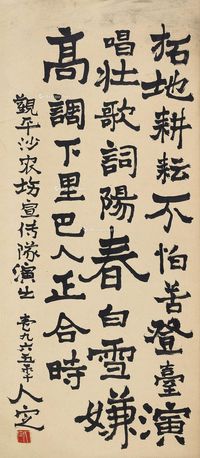 拓地耕耘不怕苦登臺演
唱壮歌詞陽春白雪嫌
高調下里巴人正合時
觀平沙农坊宣传隊演出
一九六五年 人空